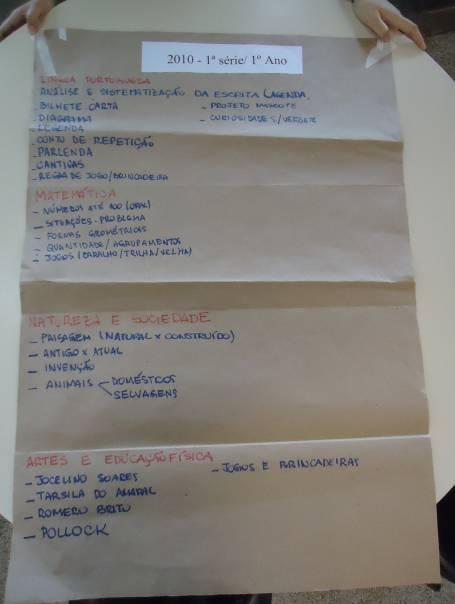 2010 - 1ª série/ 1º Ano
LÍNGUA PORTUGUESA
ANÁLISE E SISTEMATIZAÇÃO DA ESCRITA (AGENDA.
- BILHETE CARTA - PROJETO MASCOTE
- DIAGRAMA - CURIOSIDADES/VERBETE
- LEGENDA
- CONTO DE REPETIÇÃO
- PARLENDA
- CANTIGAS
- REGRA DE JOGO/BRINCADEIRA
MATEMÁTICA
- NÚMEROS ATÉ 100 (ORAL)
- SITUAÇÕES-PROBLEMA
- FORMAS GEOMÉTRICAS
- QUANTIDADE/AGRUPAMENTOS
- JOGOS (BARALHO/TRILHA/VELHA)
NATUREZA E SOCIEDADE
- PAISAGEM (NATURAL X CONSTRUÍDO)
- ANTIGO X ATUAL
- INVENÇÃO
- ANIMAIS DOMÉSTICOS
SELVAGENS
ARTES E EDUCAÇÃO FÍSICA
- JOCELINO SOARES - JOGOS E BRINCADEIRAS
- TARSILA DO AMARAL
- ROMERO BRITO
- POLLOCK